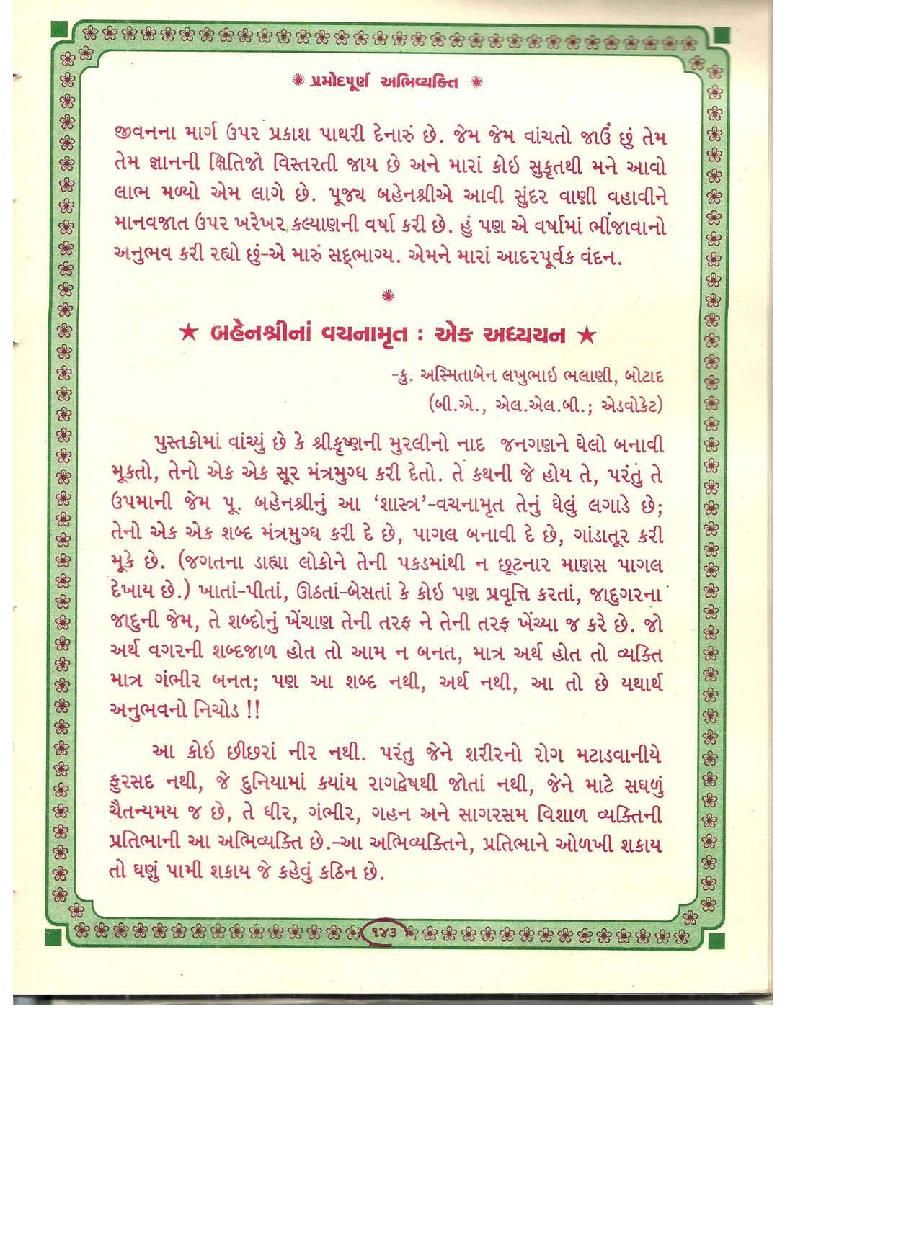 ✺ પ્રમોદપૂર્ણ અભિવ્યક્તિ ✺
જીવનના માર્ગ ઉપર પ્રકાશ પાથરી દેનારું છે. જેમ જેમ વાંચતો જાઉં છું તેમ
તેમ જ્ઞાનની ક્ષિતિજો વિસ્તરતી જાય છે અને મારાં કોઇ સુકૃતથી મને આવો
લાભ મળ્યો એમ લાગે છે. પૂજ્ય બહેનશ્રીએ આવી સુંદર વાણી વહાવીને
માનવજાત ઉપર ખરેખર કલ્યાણની વર્ષા કરી છે. હું પણ એ વર્ષામાં ભીંજાવાનો
અનુભવ કરી રહ્યો છું-એ મારું સદ્ભાગ્ય. એમને મારાં આદરપૂર્વક વંદન.
✺
★ બહેનશ્રીનાં વચનામૃત : એક અધ્યયન ★
-કુ. અસ્મિતાબેન લખુભાઇ ભલાણી, બોટાદ
(બી.એ., એલ.એલ.બી.; એડવોકેટ)
પુસ્તકોમાં વાંચ્યું છે કે શ્રીકૃષ્ણની મુરલીનો નાદ જનગણને ઘેલો બનાવી
મૂકતો, તેનો એક એક સૂર મંત્રમુગ્ધ કરી દેતો. તે કથની જે હોય તે, પરંતુ તે
ઉપમાની જેમ પૂ. બહેનશ્રીનું આ ‘શાસ્ત્ર’-વચનામૃત તેનું ઘેલું લગાડે છે;
તેનો એક એક શબ્દ મંત્રમુગ્ધ કરી દે છે, પાગલ બનાવી દે છે, ગાંડાતૂર કરી
મૂકે છે. (જગતના ડાહ્યા લોકોને તેની પકડમાંથી ન છૂટનાર માણસ પાગલ
દેખાય છે.) ખાતાં-પીતાં, ઊઠતાં-બેસતાં કે કોઇ પણ પ્રવૃત્તિ કરતાં, જાદુગરના
જાદુની જેમ, તે શબ્દોનું ખેંચાણ તેની તરફ ને તેની તરફ ખેંચ્યા જ કરે છે. જો
અર્થ વગરની શબ્દજાળ હોત તો આમ ન બનત, માત્ર અર્થ હોત તો વ્યક્તિ
માત્ર ગંભીર બનત; પણ આ શબ્દ નથી, અર્થ નથી, આ તો છે યથાર્થ
અનુભવનો નિચોડ !!
આ કોઇ છીછરાં નીર નથી. પરંતુ જેને શરીરનો રોગ મટાડવાનીયે
ફુરસદ નથી, જે દુનિયામાં કયાંય રાગદ્વેષથી જોતાં નથી, જેને માટે સઘળું
ચૈતન્યમય જ છે, તે ધીર, ગંભીર, ગહન અને સાગરસમ વિશાળ વ્યક્તિની
પ્રતિભાની આ અભિવ્યક્તિ છે.-આ અભિવ્યક્તિને, પ્રતિભાને ઓળખી શકાય
તો ઘણું પામી શકાય જે કહેવું કઠિન છે.
૧૪૩